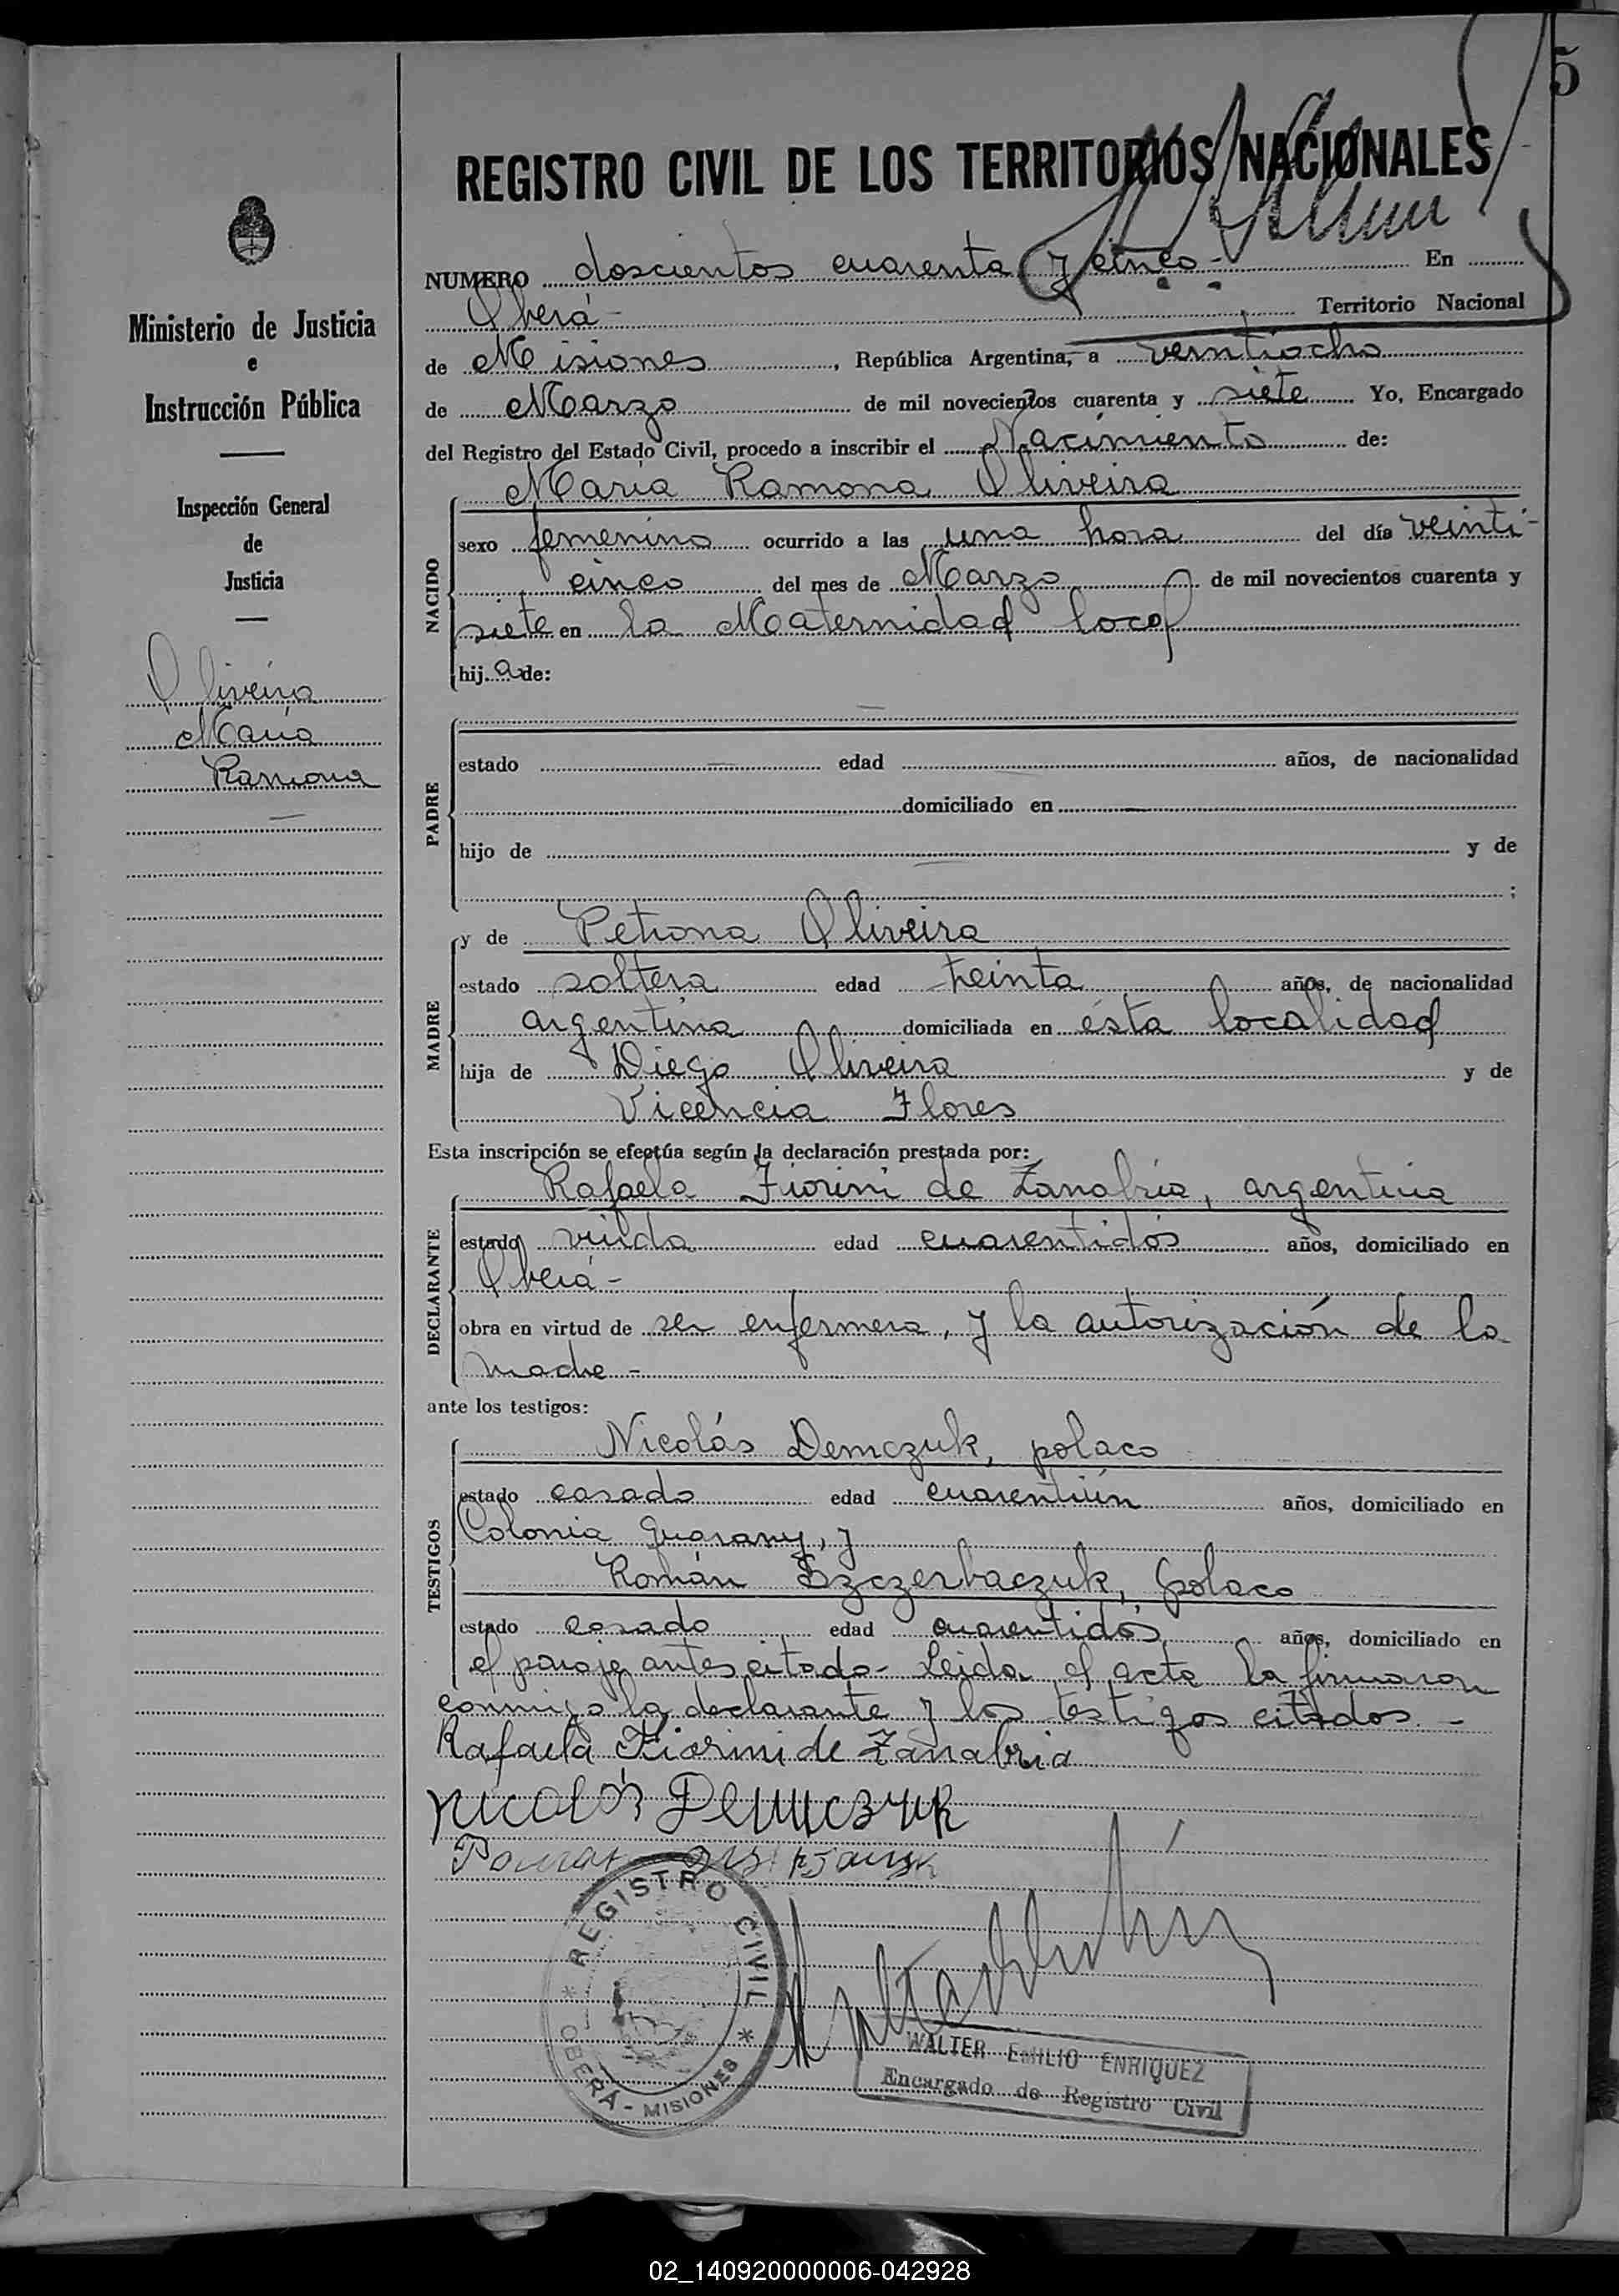 5
REGISTRO CIVIL DE LOS TERRITORIOS NACIONALES
NUMERO doscientos cuarenta y cinco - En
Oberá - Territorio Nacional
de Misiones, República Argentina, a veintiocho
de Marzo de mil novecientos cuarenta y siete Yo, Encargado
del Registro del Estado Civil, procedo a inscribir el Nacimiento de:
Ministerio de Justicia
e
Instrucción Pública
Inspección General
de
Justicia
Oliveira
María
Ramona
—
NACIDO
María Ramona Oliveira
sexo femenino ocurrido a las una hora del día veinti-
cinco del mes de Marzo de mil novecientos cuarenta y
siete en la Maternidad local
hij a de:
PADRE
—
estado — edad — años, de nacionalidad
domiciliado en —
hijo de — y de
;
MADRE
y de Petrona Oliveira
estado soltera edad treinta años, de nacionalidad
argentina domiciliada en ésta localidad
hija de Diego Oliveira y de
Vicencia Flores
Esta inscripción se efectúa según la declaración prestada por:
DECLARANTE
Rafaela Fiorini de Zanabria, argentina
estado viuda edad cuarentidós años, domiciliado en
Oberá -
obra en virtud de ser enfermera, y la autorización de la
madre -
ante los testigos:
TESTIGOS
Nicolás Demczuk, polaco
estado casado edad cuarentiún años, domiciliado en
Colonia Guarany, y
Román Szczerbaczuk, polaco
estado casado edad cuarentidós años, domiciliado en
el paraje antes citado - Leida el acta la firmaron
conmigo la declarante y los testigos citados. -
Rafaela Fiorini de Zanabria
Nicolás Demczuk
REGISTRO CIVIL
* OBERÁ - MISIONES *
WALTER EMILIO ENRIQUEZ
Encargado de Registro Civil
02_140920000006-042928